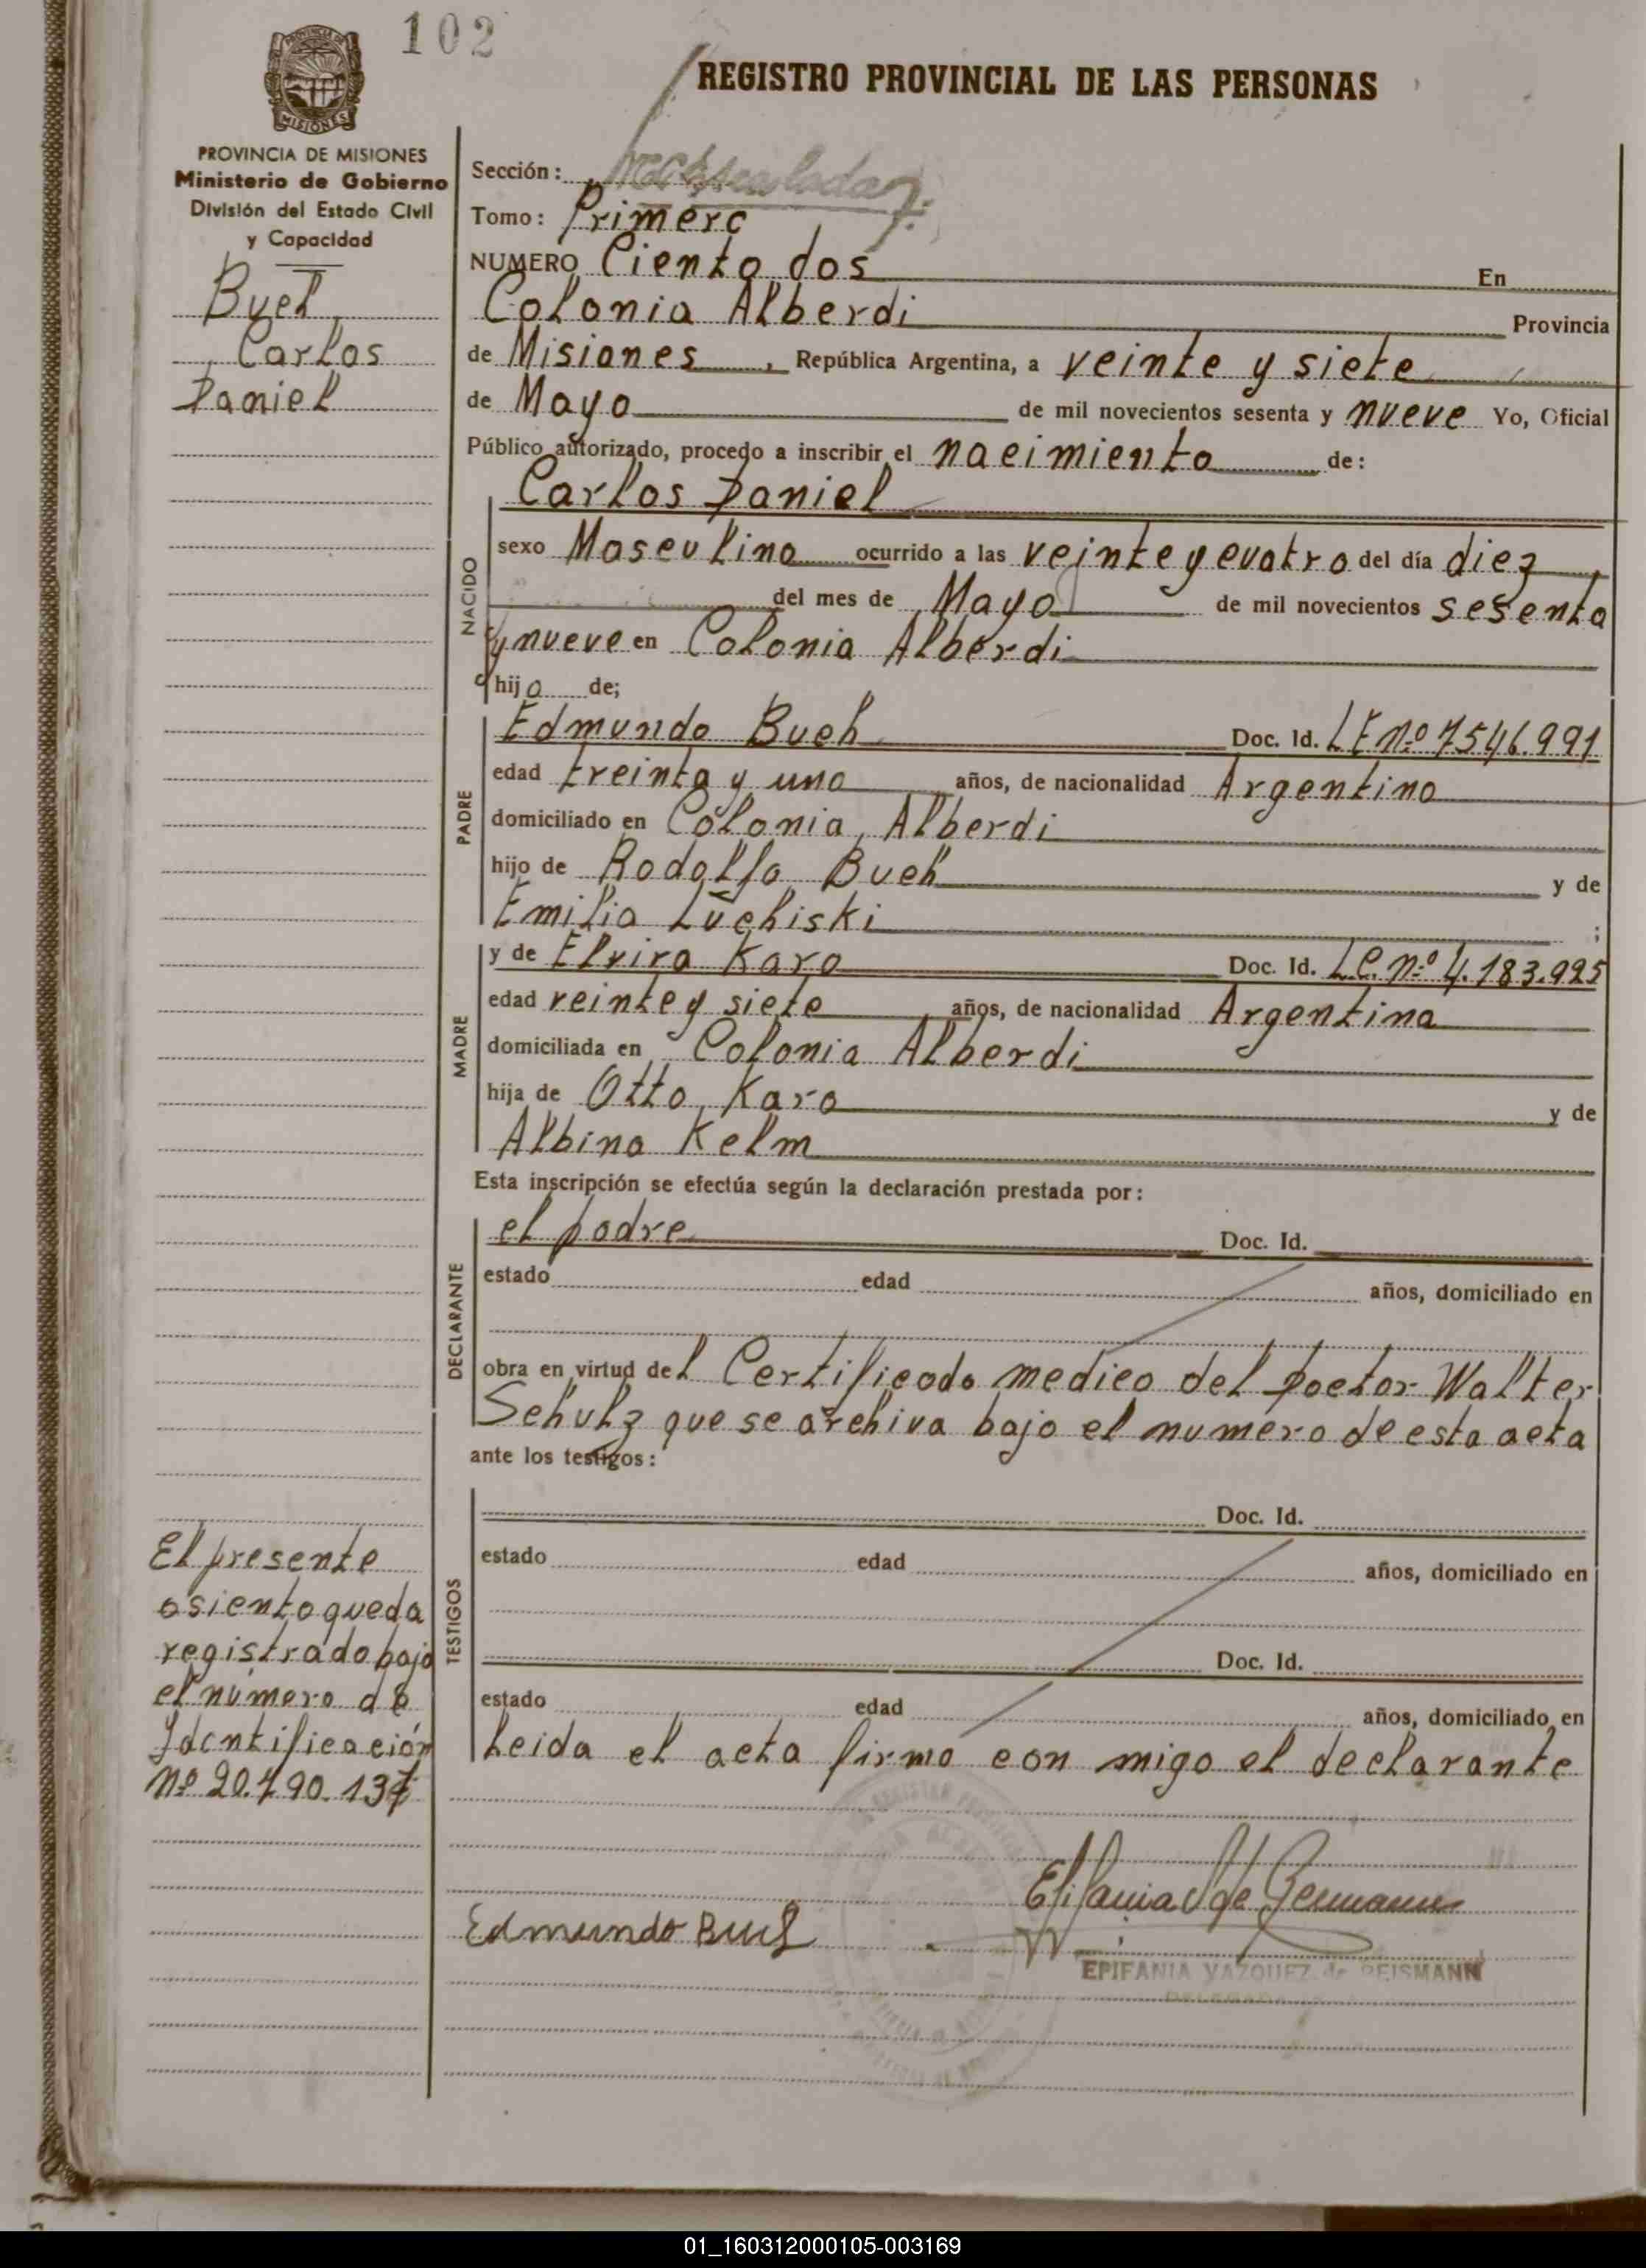 102
REGISTRO PROVINCIAL DE LAS PERSONAS
MISIONES
PROVINCIA DE MISIONES
Ministerio de Gobierno
División del Estado Civil
y Capacidad
Buek
Carlos
Daniel
Sección:
Tomo: Primero
NUMERO Ciento dos En
Colonia Alberdi Provincia
de Misiones, República Argentina, a veinte y siete
de Mayo de mil novecientos sesenta y nueve Yo, Oficial
Público autorizado, procedo a inscribir el nacimiento de:
Carlos Daniel
NACIDO
sexo Masculino ocurrido a las veinte y cuatro del día diez
del mes de Mayo de mil novecientos sesenta
y nueve en Colonia Alberdi
hijo de;
PADRE
Edmundo Buek Doc. Id. LE nº 7546.991
edad treinta y uno años, de nacionalidad Argentino
domiciliado en Colonia Alberdi
hijo de Rodolfo Buek y de
Emilia Luchiski ;
MADRE
y de Elvira Karo Doc. Id. L.C. nº 4.183.925
edad veinte y siete años, de nacionalidad Argentina
domiciliada en Colonia Alberdi
hija de Otto Karo y de
Albina Kelm
Esta inscripción se efectúa según la declaración prestada por:
DECLARANTE
el padre Doc. Id.
estado edad años, domiciliado en
obra en virtud del Certificado medico del Doctor Walter
Schulz que se archiva bajo el numero de esta acta
ante los testigos:
TESTIGOS
Doc. Id.
estado edad años, domiciliado en
Doc. Id.
estado edad años, domiciliado en
Leida el acta firmo con migo el declarante
El presente
asiento queda
registrado bajo
el numero de
Identificación
nº 20.790.137
Edmundo Buek
EPIFANIA VAZQUEZ de REISMANN
01_160312000105-003169